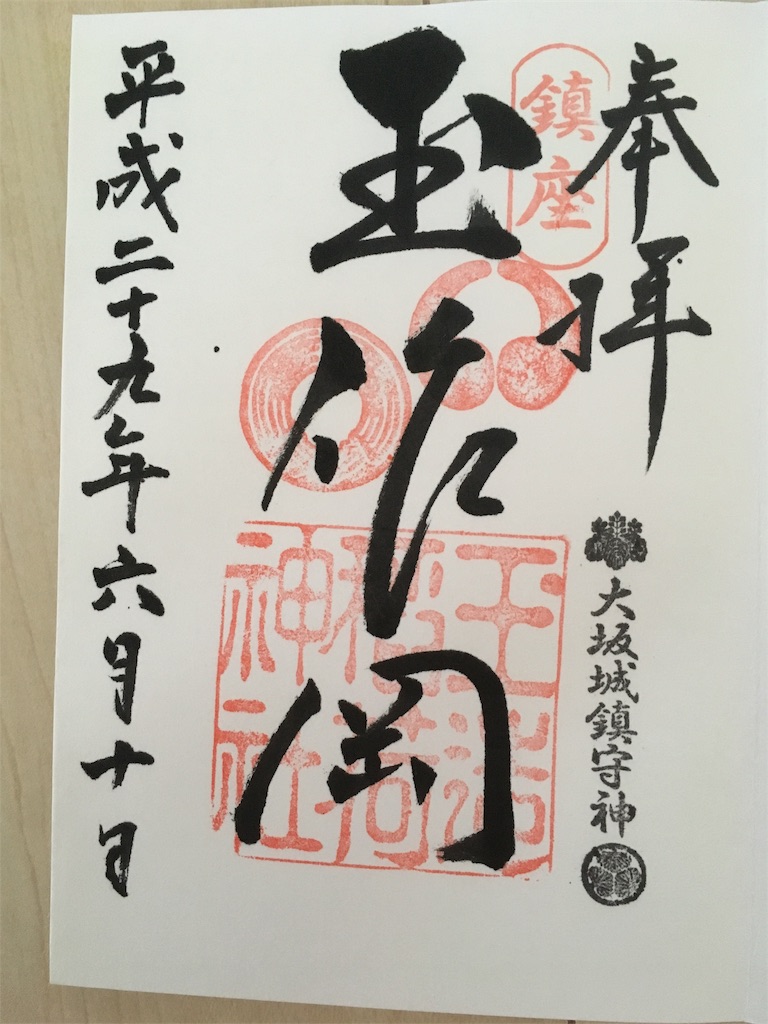 奉拝
大坂城鎮守神
鎮座
玉作岡
玉造
稲荷
神社
平成二十九年六月十日